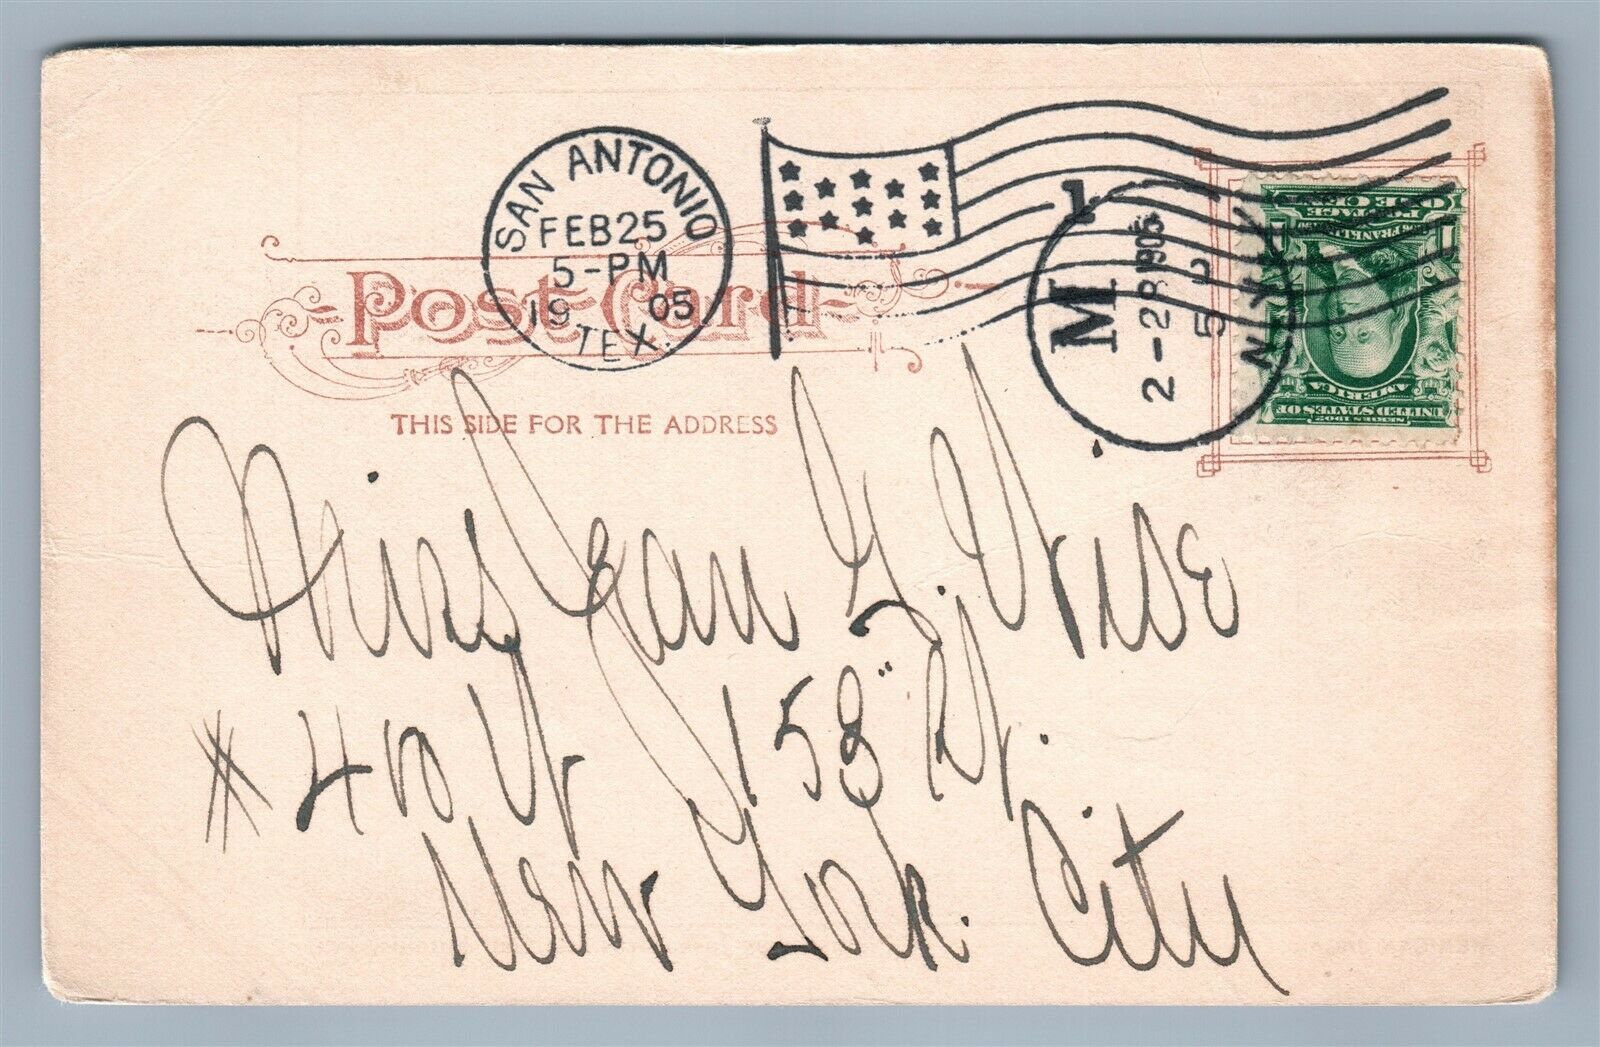 SAN ANTONIO
FEB 25
5-PM
1905
TEX.
1
M
2-28 1905
N.Y.
ONE CENT
POSTAGE
FRANKLIN
UNITED STATES OF
AMERICA
SERIES 1902
Post Card
THIS SIDE FOR THE ADDRESS
Miss Jean G. Wise
#40 W 158" St.
New York City